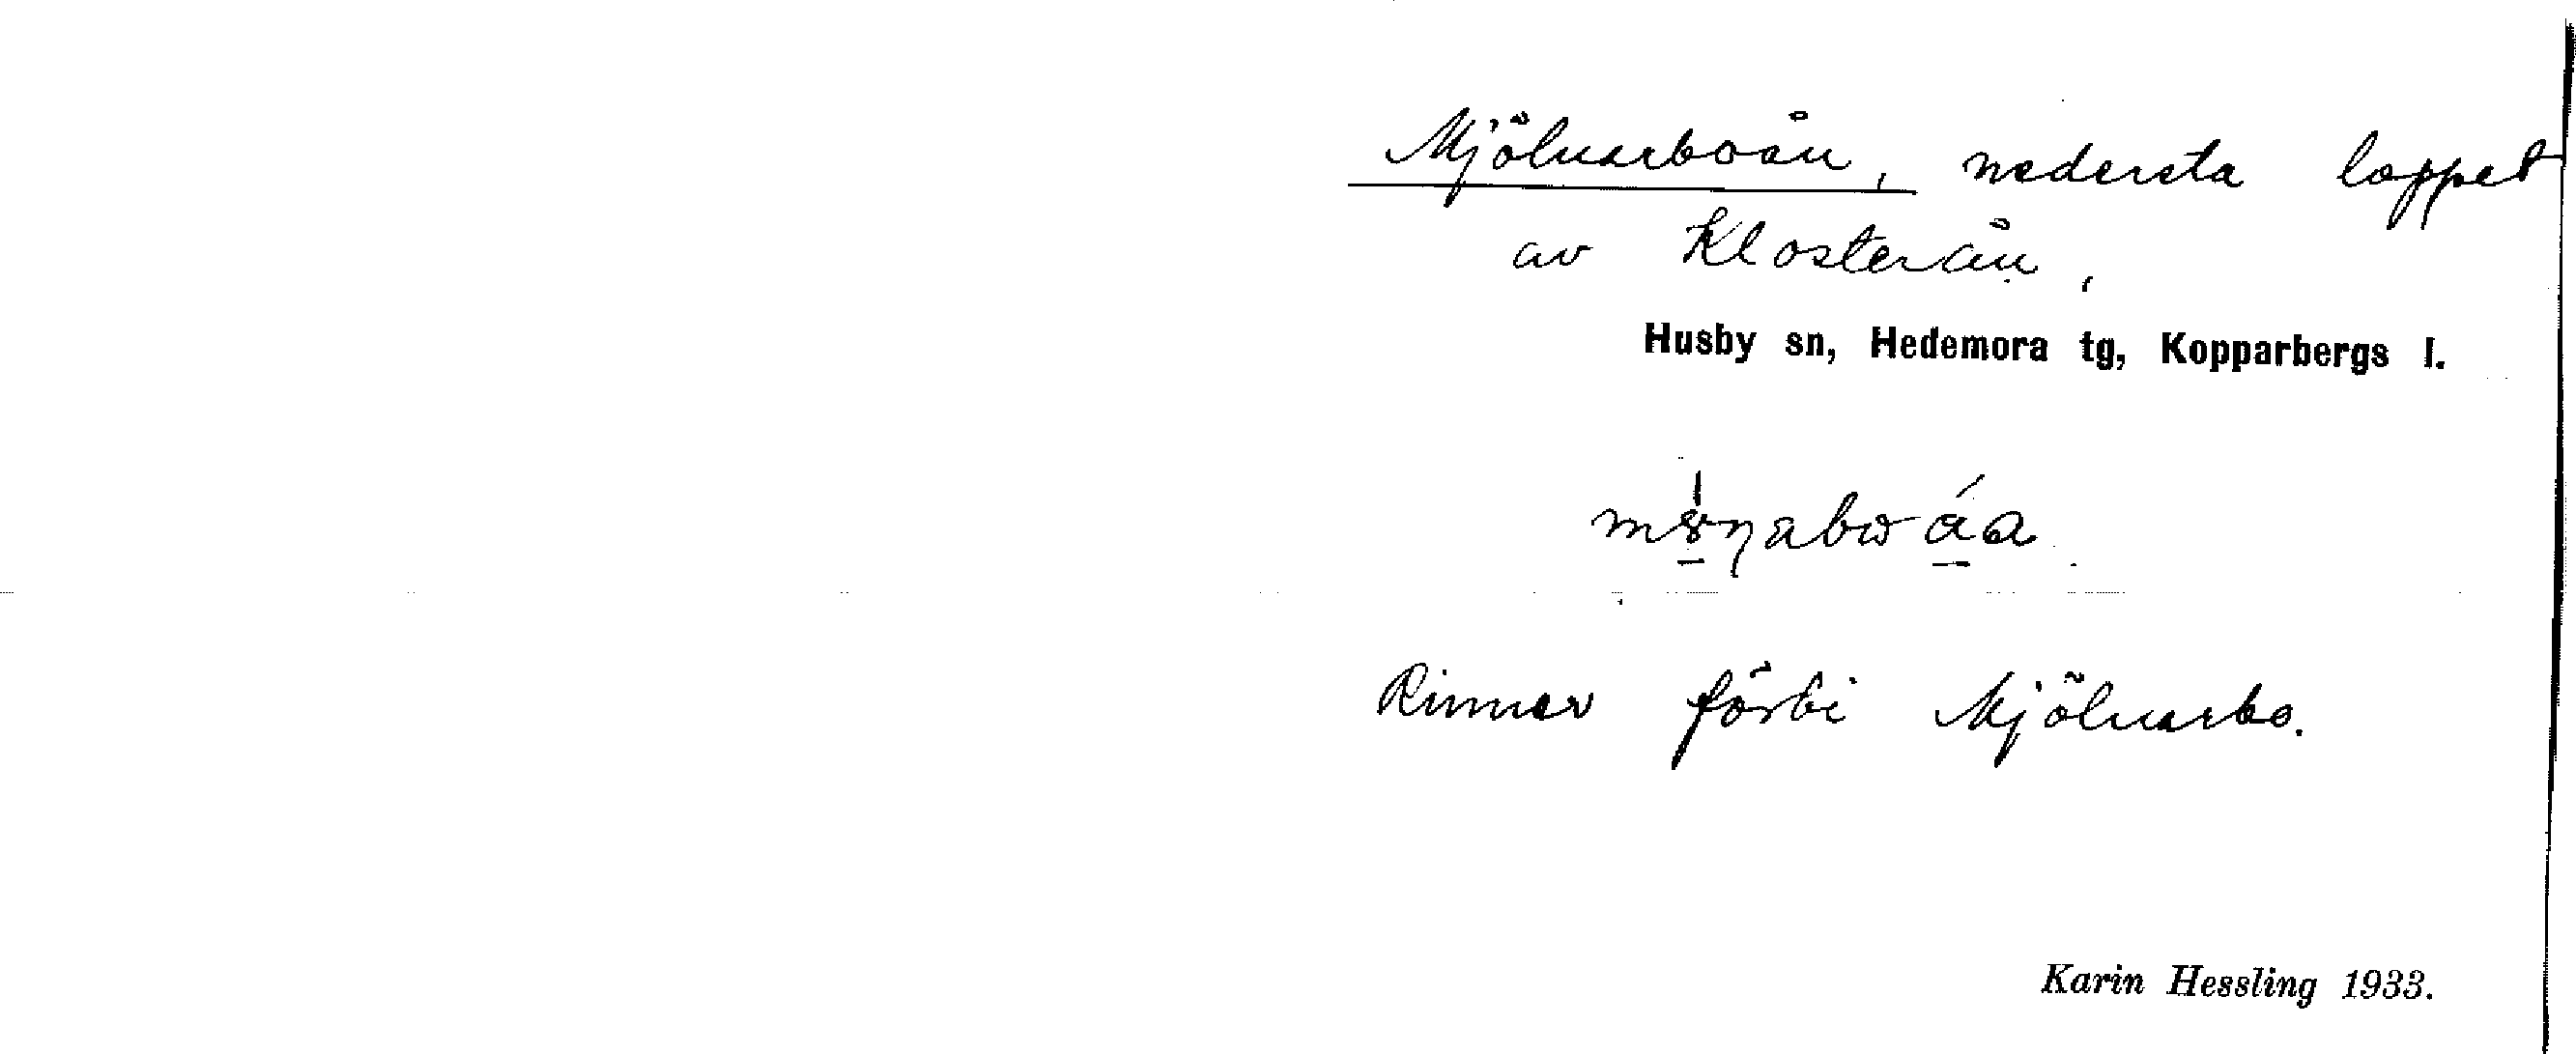 Mjölnarboån, nedersta loppet
av Klosterån,
Husby sn, Hedemora tg, Kopparbergs l.
Rinner förbi Mjölnarbo.
Karin Hessling 1933.